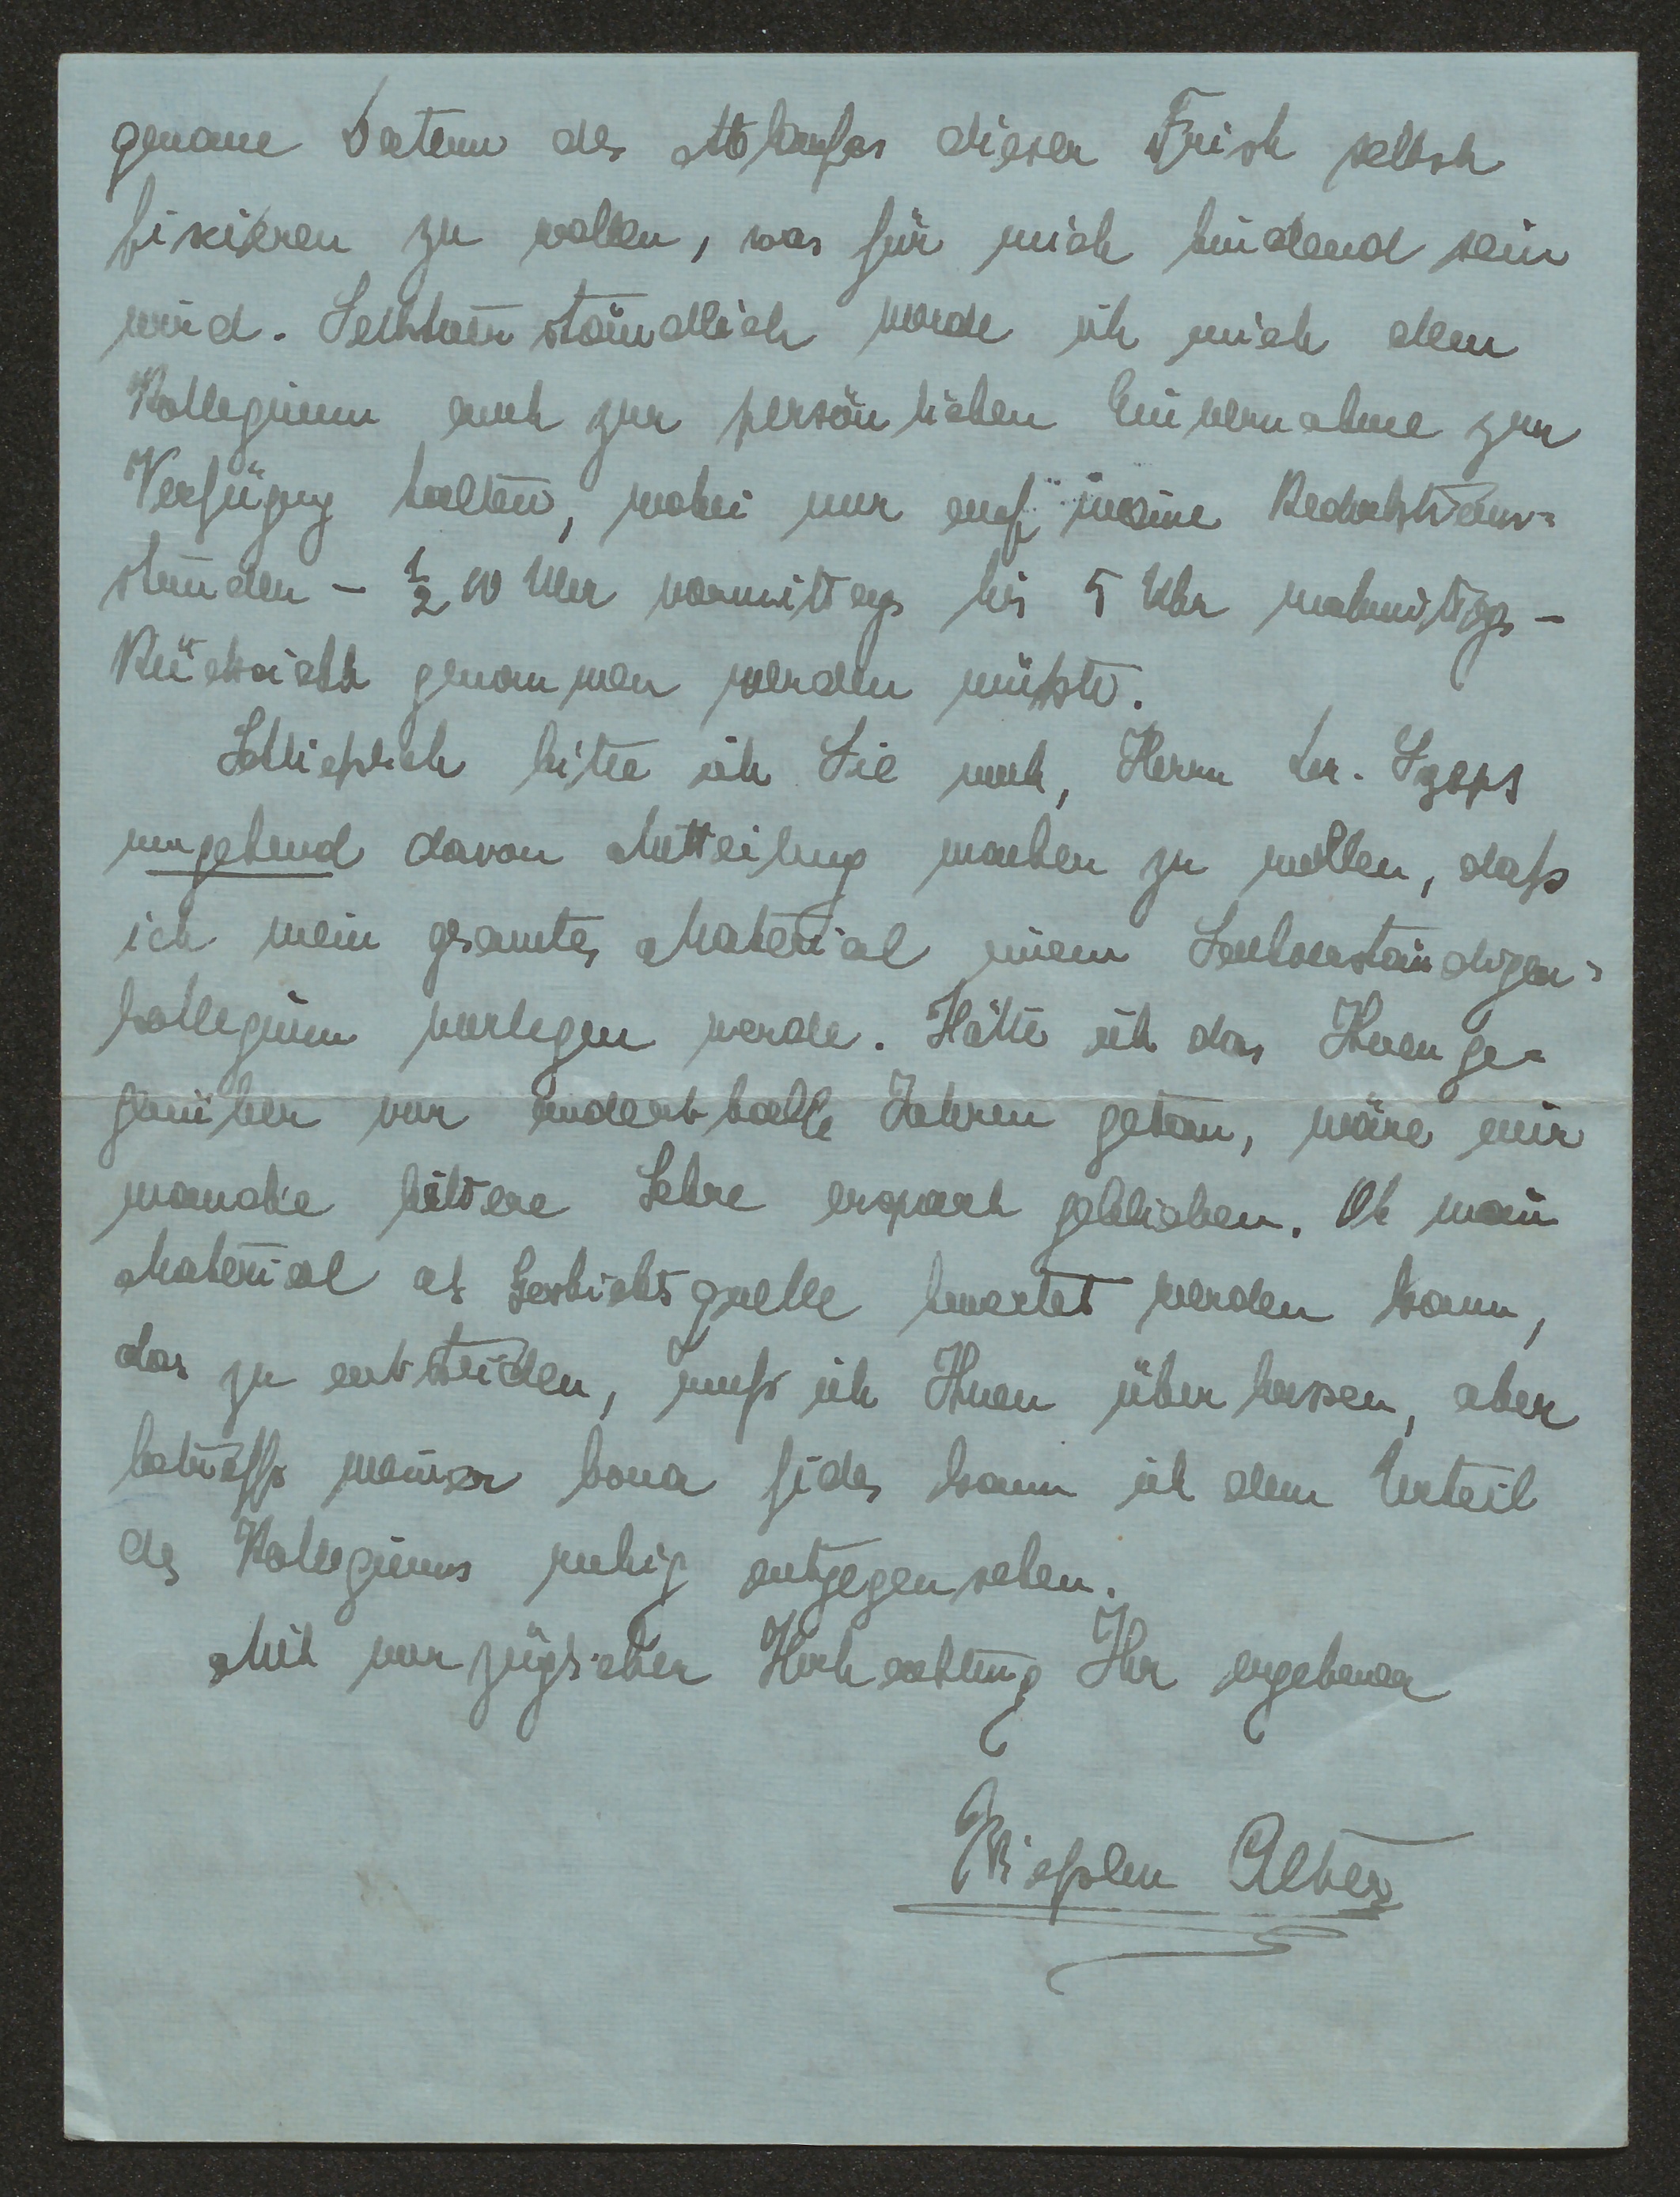 genaue Datum des Ablaufes dieser Frist selbst
fixieren zu wollen, was für mich bindend sein
wird. Selbstverständlich werde ich mich dem
Kollegium auch zur persönlichen Einvernahme zur
Verfügung halten, wobei nur auf meine Redaktions=
stunden - ½ 10 Uhr vormittags bis 5 Uhr nachmittags -
Rücksicht genommen werden müßte.
Schließlich bitte ich Sie noch, Herrn Dr. Szeps
umgehend davon Mitteilung machen zu wollen, daß
ich mein gesamtes Material einem Sachverständigen=
kollegium vorlegen werde. Hätte ich das Ihnen ge=
genüber vor anderthalb Jahren getan, wäre mir
manche bittere Lehre erspart geblieben. Ob mein
Material als Geschichtsquelle bewertet werden kann,
das zu entscheiden, muß ich Ihnen überlassen, aber
betreffs meiner bona fides kann ich dem Urteil
des Kollegiums ruhig entgegensehen.
Mit vorzüglicher Hochachtung Ihr ergebener